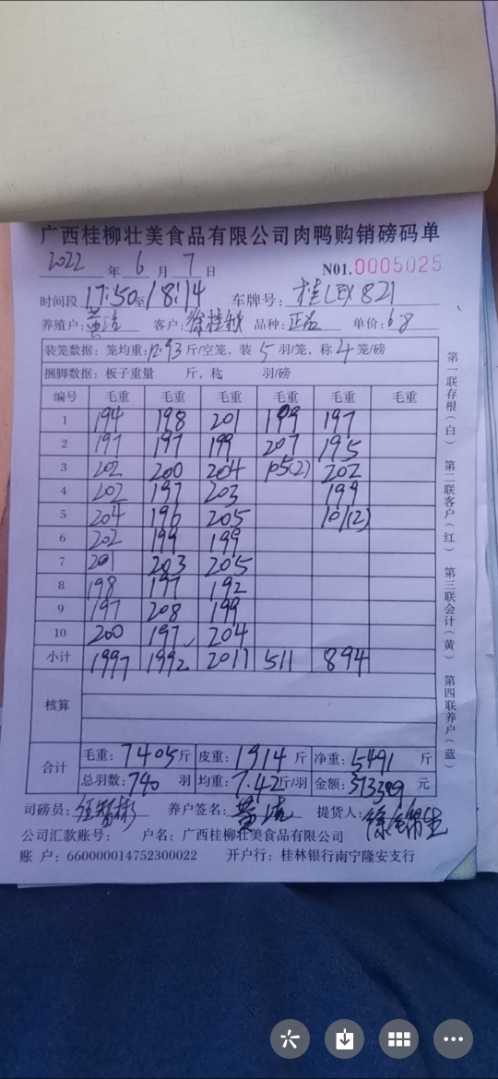 广西桂柳壮美食品有限公司肉鸭购销磅码单
2022 年 6 月 7 日 N01.0005025
时间段 17:50至18:14 车牌号: 桂LEX821
养殖户: 黄 客户: 徐桂 品种: 单价: 6.8
装笼数据: 笼均重: 12.93 斤/空笼, 装 5 羽/笼, 称 4 笼/磅
捆脚数据: 板子重量 斤, 称 羽/磅
编号 毛重 毛重 毛重 毛重 毛重 毛重
1 194 198 201 199 197
2 197 197 199 207 195
3 202 200 204 105(2) 202
4 202 197 203 199
5 204 196 205 101(2)
6 202 199 199
7 201 203 205
8 198 197 192
9 197 208 199
10 200 197 204
小计 1997 1992 2011 511 894
核算
合计 毛重: 7405 斤 皮重: 1914 斤 净重: 5491 斤
总羽数: 740 羽 均重: 7.42 斤/羽 金额: 元
司磅员: 养户签名: 黄 提货人: 徐
公司汇款账号: 户名: 广西桂柳壮美食品有限公司
账 户: 660000014752300022 开户行: 桂林银行南宁隆安支行
第一联存根(白) 第二联客户(红) 第三联会计(黄) 第四联养户(蓝)